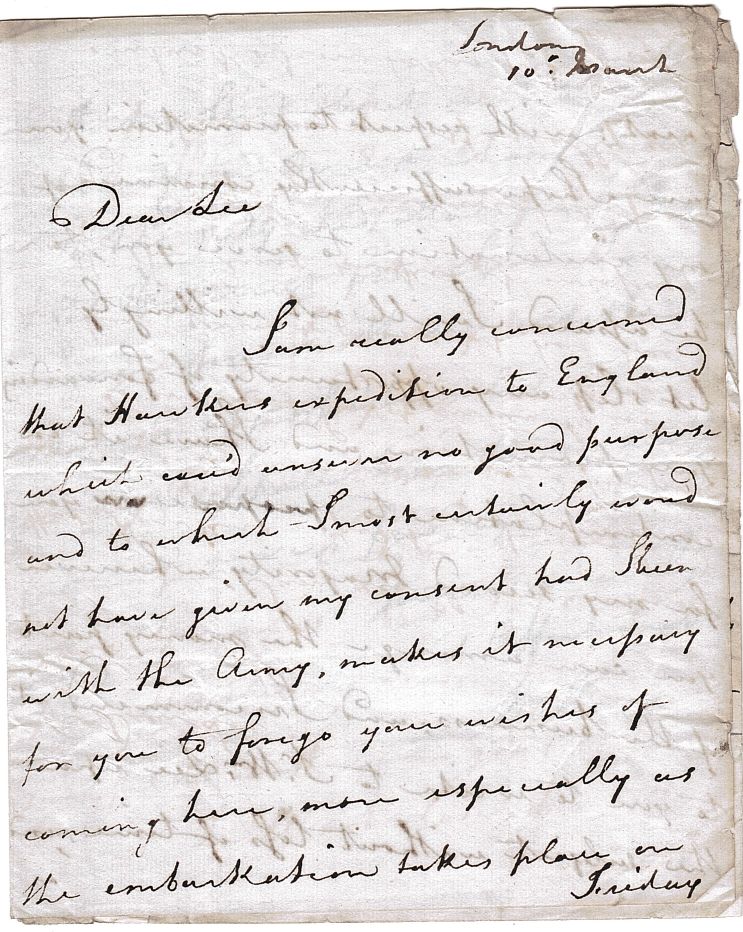 London
10th March
Dear Lee
I am really concerned
that Hawkers expedition to England
which cou'd answer no good purpose
and to which I most certainly would
not have given my consent had I been
with the Army, makes it necessary
for you to forego your wishes of
coming here, more especially as
the embarkation takes place on
Friday